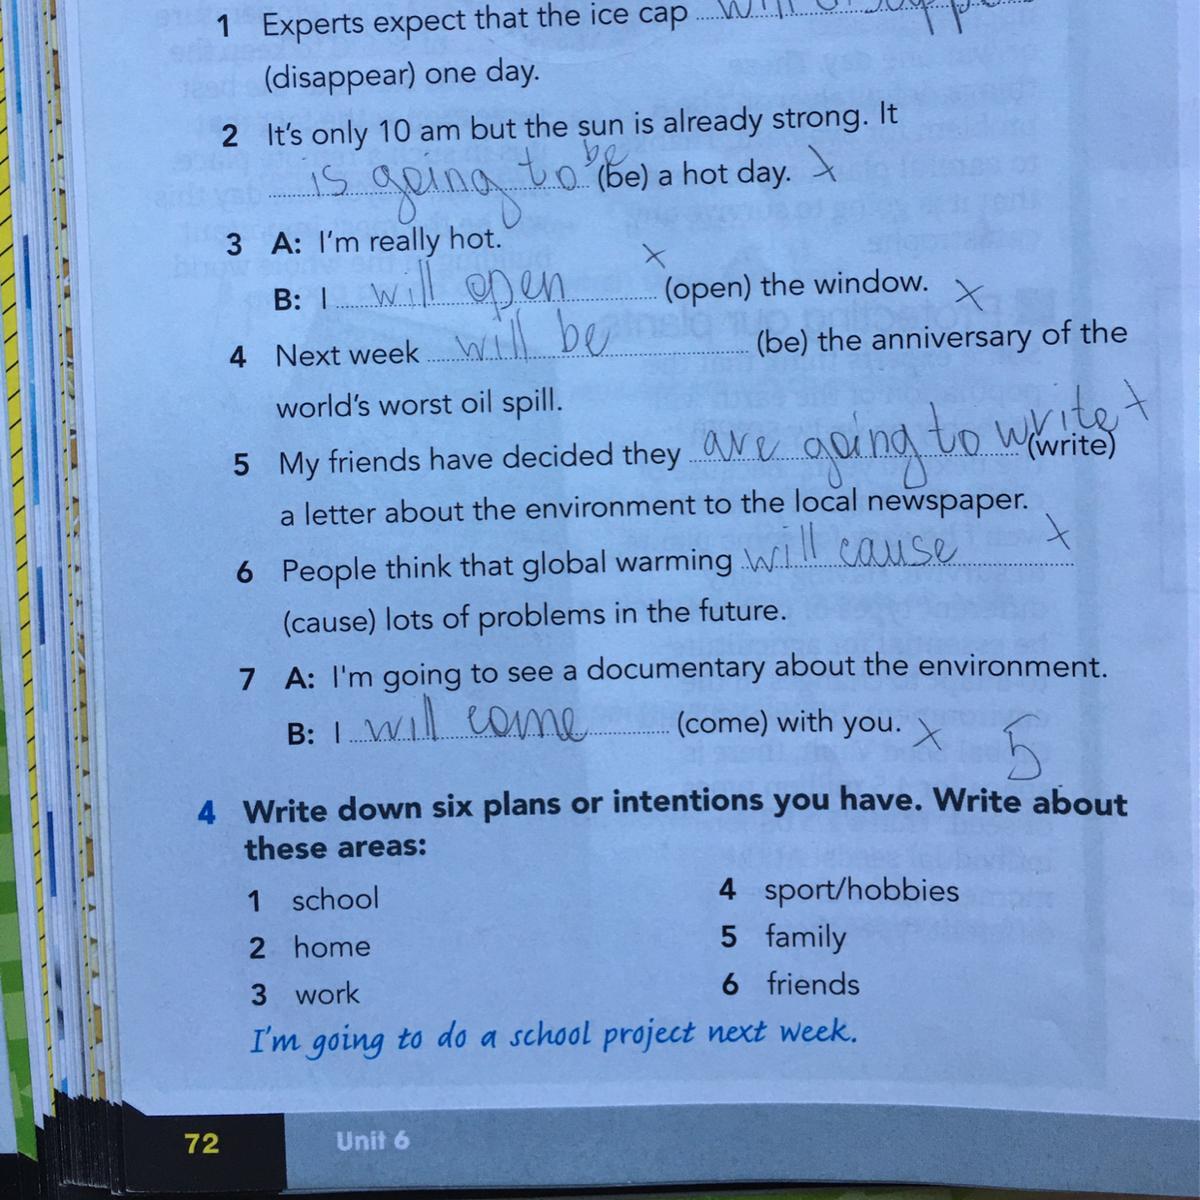 1 Experts expect that the ice cap will disapp
(disappear) one day.
2 It's only 10 am but the sun is already strong. It
is going to be (be) a hot day. x
3 A: I'm really hot. x
B: I will open (open) the window. x
4 Next week will be (be) the anniversary of the
world's worst oil spill.
5 My friends have decided they are going to write (write) x
a letter about the environment to the local newspaper.
6 People think that global warming will cause x
(cause) lots of problems in the future.
7 A: I'm going to see a documentary about the environment.
B: I will come (come) with you. x 5
4 Write down six plans or intentions you have. Write about
these areas:
1 school
2 home
3 work
4 sport/hobbies
5 family
6 friends
I'm going to do a school project next week.
72 Unit 6